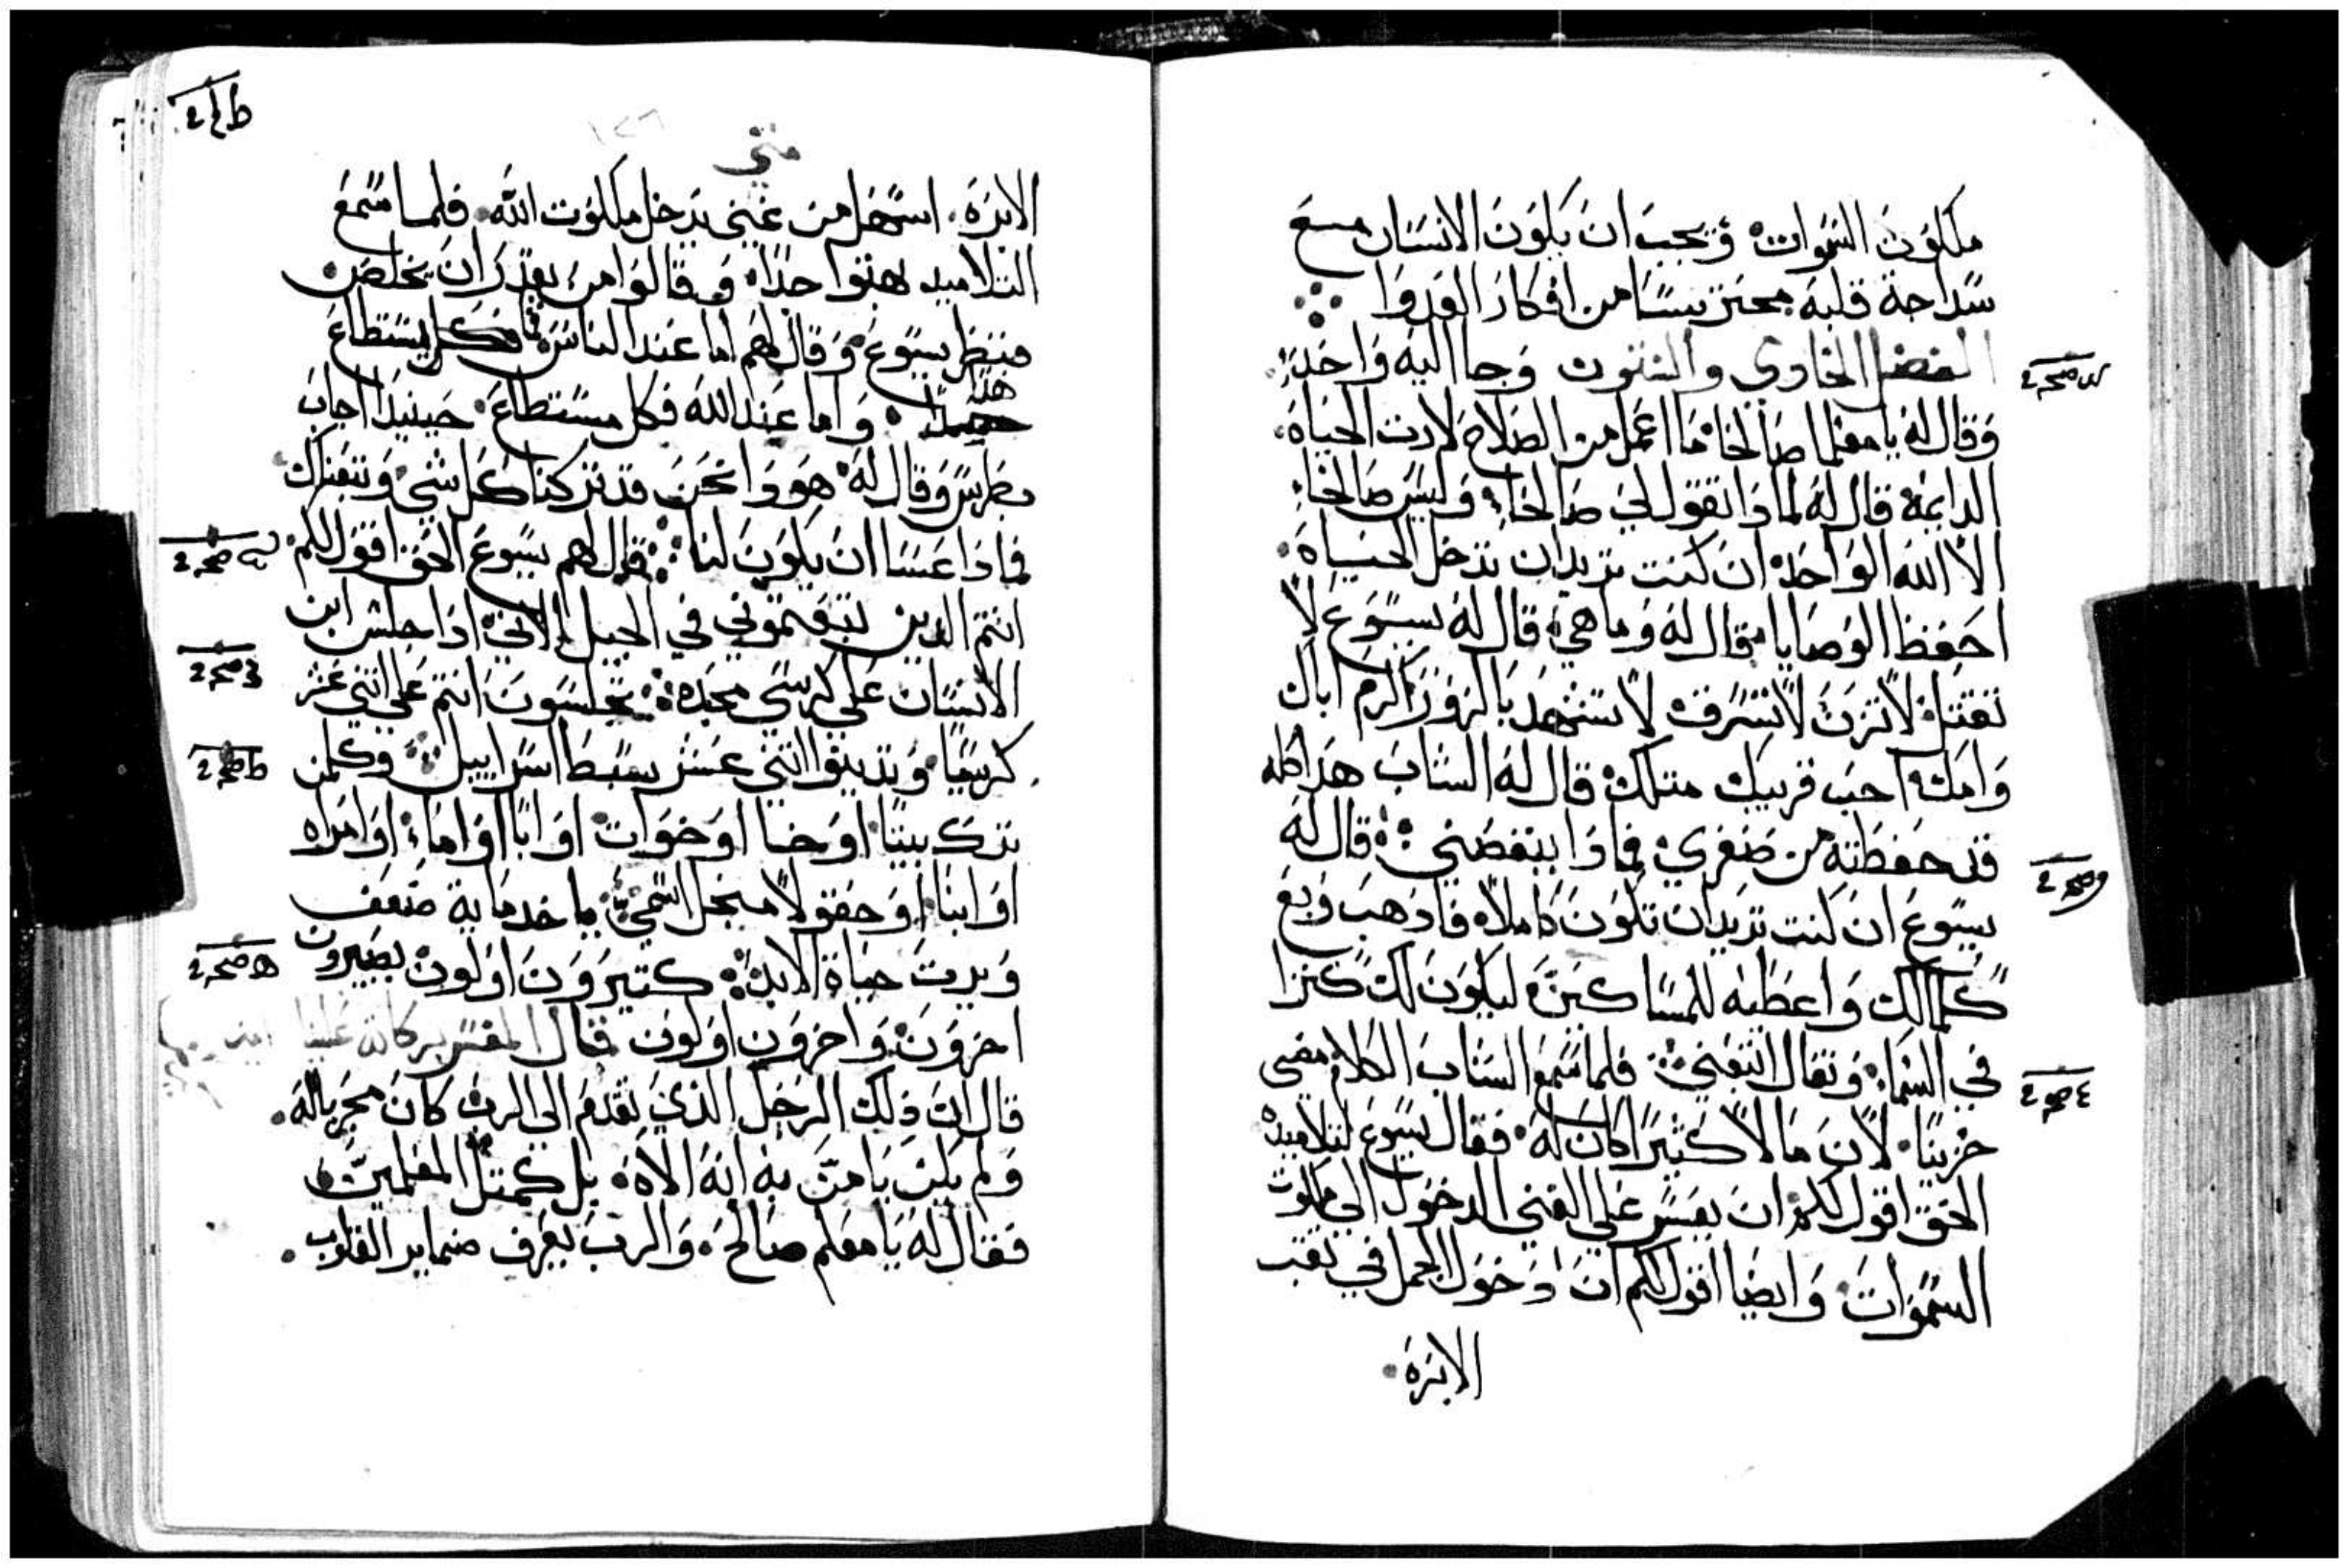 ملكوت السموات وَيجب ان يكوَن الانسَان مسع
سَداجة قلبه محترسًا من افكار العدوا
الفصل الحادي والستون وَجا اليه وَاحَد
وَقال له يا معلما صَالحًا مَا اعمل من الصَلاح لارت الحيَاة
الدايمة قال له لمادَا تقوَل لي صَالحًا وَليسَ صَالحًا
الا الله الوَاحَد ان كنت تريد ان تدخل الحيَاة
احَفظ الوَصَايا قال له وَما هي قال له يسَوَع لا
تقتل لا تزن لا تسَرق لا تسَتهد بالزوَر اكرم اباك
وَامك احب قريبك متلك قال له الشاب هدا كله
قد حفظته من صَغري فمادَا ينقصَني قال له
يسَوَع ان كنت تريد ان تكوَن كاملا فادهب وَبع
كلمالك وَاعطيه للمسَاكين ليكوَن لك كنزا
في السَماء وَتعال اتبعني فلما سَمع الشاب الكلام مضى
حزينا لان مالا كتيرًا كان له فقال يسَوَع لتلاميده
الحق اقوَل لكم ان يعسَر على الغني الدخوَل الي ملكوت
السَموَات وَايضَا اقوَل لكم ان دخوَل الجمل في تقب
الابرَة
متي
الابرَة اسَهل من غني يدخل ملكوَت الله فلما سَمع
التلاميد بهتوا جدًا وَقالوَا من يقدر ان يخلص
فنظر يسَوَع وَقال لهم اما عند الناسَ فما يسَتطاع
هدا وَاما عند الله فكل مسَتطاع حينيد اجاب
بطرسَ وَقال له هوَدا نحن قد تركنا كل شي وَتبعناك
فمادَا عسَا ان يكوَن لنا قال لهم يسَوَع الحق اقوَل لكم
انتم الدين تبعتموني في الجيل الاتي ادَا جلسَ ابن
الانسَان على كرسَي مجده تجلسَوَن انتم على اتني عشر
كرسَيا وَتدينوا اتني عشر سَبط اسَراييل وكلمن
ترك بيتا اوَ اخا اوَ خوَات اوَ ابا اوَ اما اوَ امراه
اوَ ابنا اوَ حقوَلا منجل اسَمي ياخد ماية ضعف
وَيرت حيَاة الابد كتيروَن اوَلوَن يصَيروَن
اخروَن وَاخروَن اوَلوَن قال المفسَر بركاته علينا امين
قال ان ذلك الرَجل الذي تقدم الي الرب كان مجربا له
وَلم يكن يامن به انه الاه بل كمتل المعلمين
فقال له يا معلم صَالح وَالرب يعرف ضماير القلوب